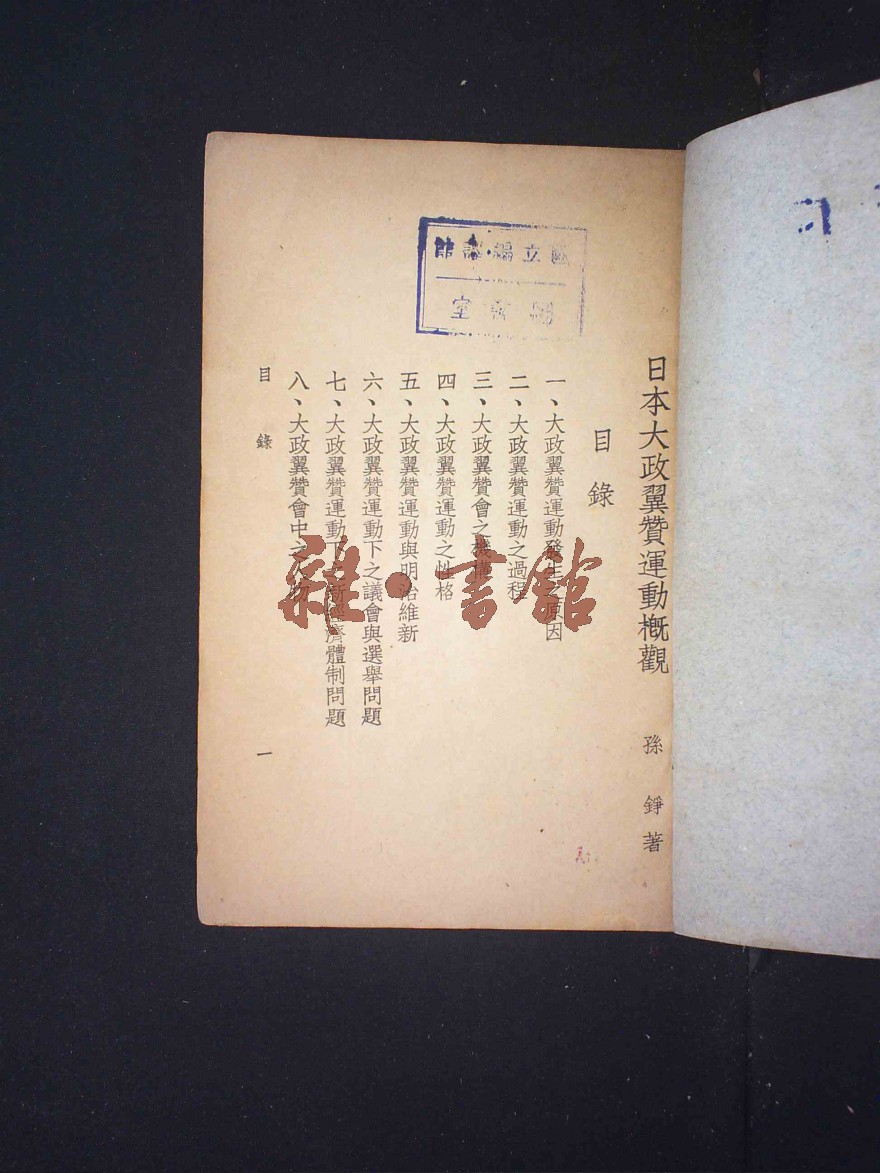 國立編譯館
圖書室
日本大政翼贊運動概觀 孫錚著
目錄
一、大政翼贊運動發生之原因
二、大政翼贊運動之過程
三、大政翼贊會之機構
四、大政翼贊運動之性格
五、大政翼贊運動與明治維新
六、大政翼贊運動下之議會與選舉問題
七、大政翼贊運動下之新經濟體制問題
八、大政翼贊會中之人物
目錄 一
雜·書館